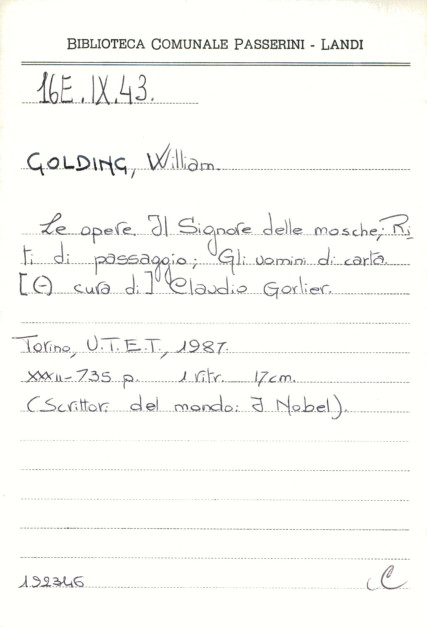 BIBLIOTECA COMUNALE PASSERINI - LANDI
16E.IX.43.
GOLDING, William.
Le opere. Il Signore delle mosche; Ri
ti di passaggio; Gli uomini di carta.
[A cura di] Claudio Gorlier.
Torino, U.T.E.T., 1987.
XXXII-735 p. 1 ritr. 17cm.
(Scrittori del mondo: I Nobel).
192346
C